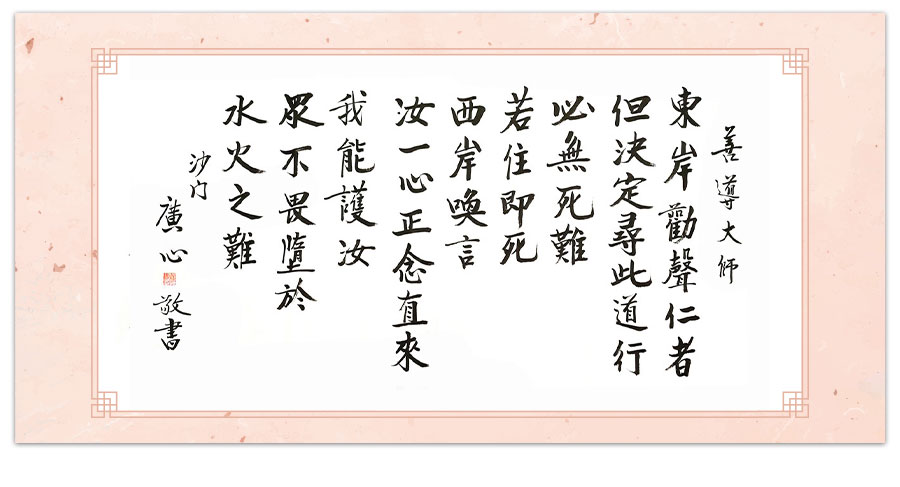 善導大師
東岸勸聲仁者
但決定尋此道行
必無死難
若住即死
西岸喚言
汝一心正念直來
我能護汝
眾不畏墮於
水火之難
沙门
廣心
敬書